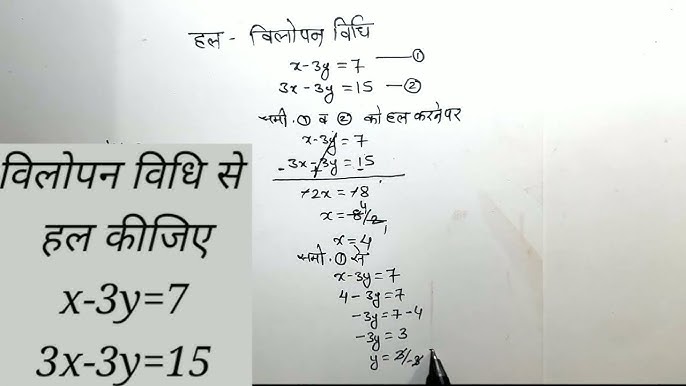 हल - विलोपन विधि
x-3y=7 —①
3x-3y=15 —②
समी. ① व ② को हल करने पर
x-3y=7
-3x-3y=15
-2x=-8
x=8/2
x=4
समी. ① से
x-3y=7
4-3y=7
-3y=7-4
-3y=3
y=3/-3
विलोपन विधि से
हल कीजिए
x-3y=7
3x-3y=15